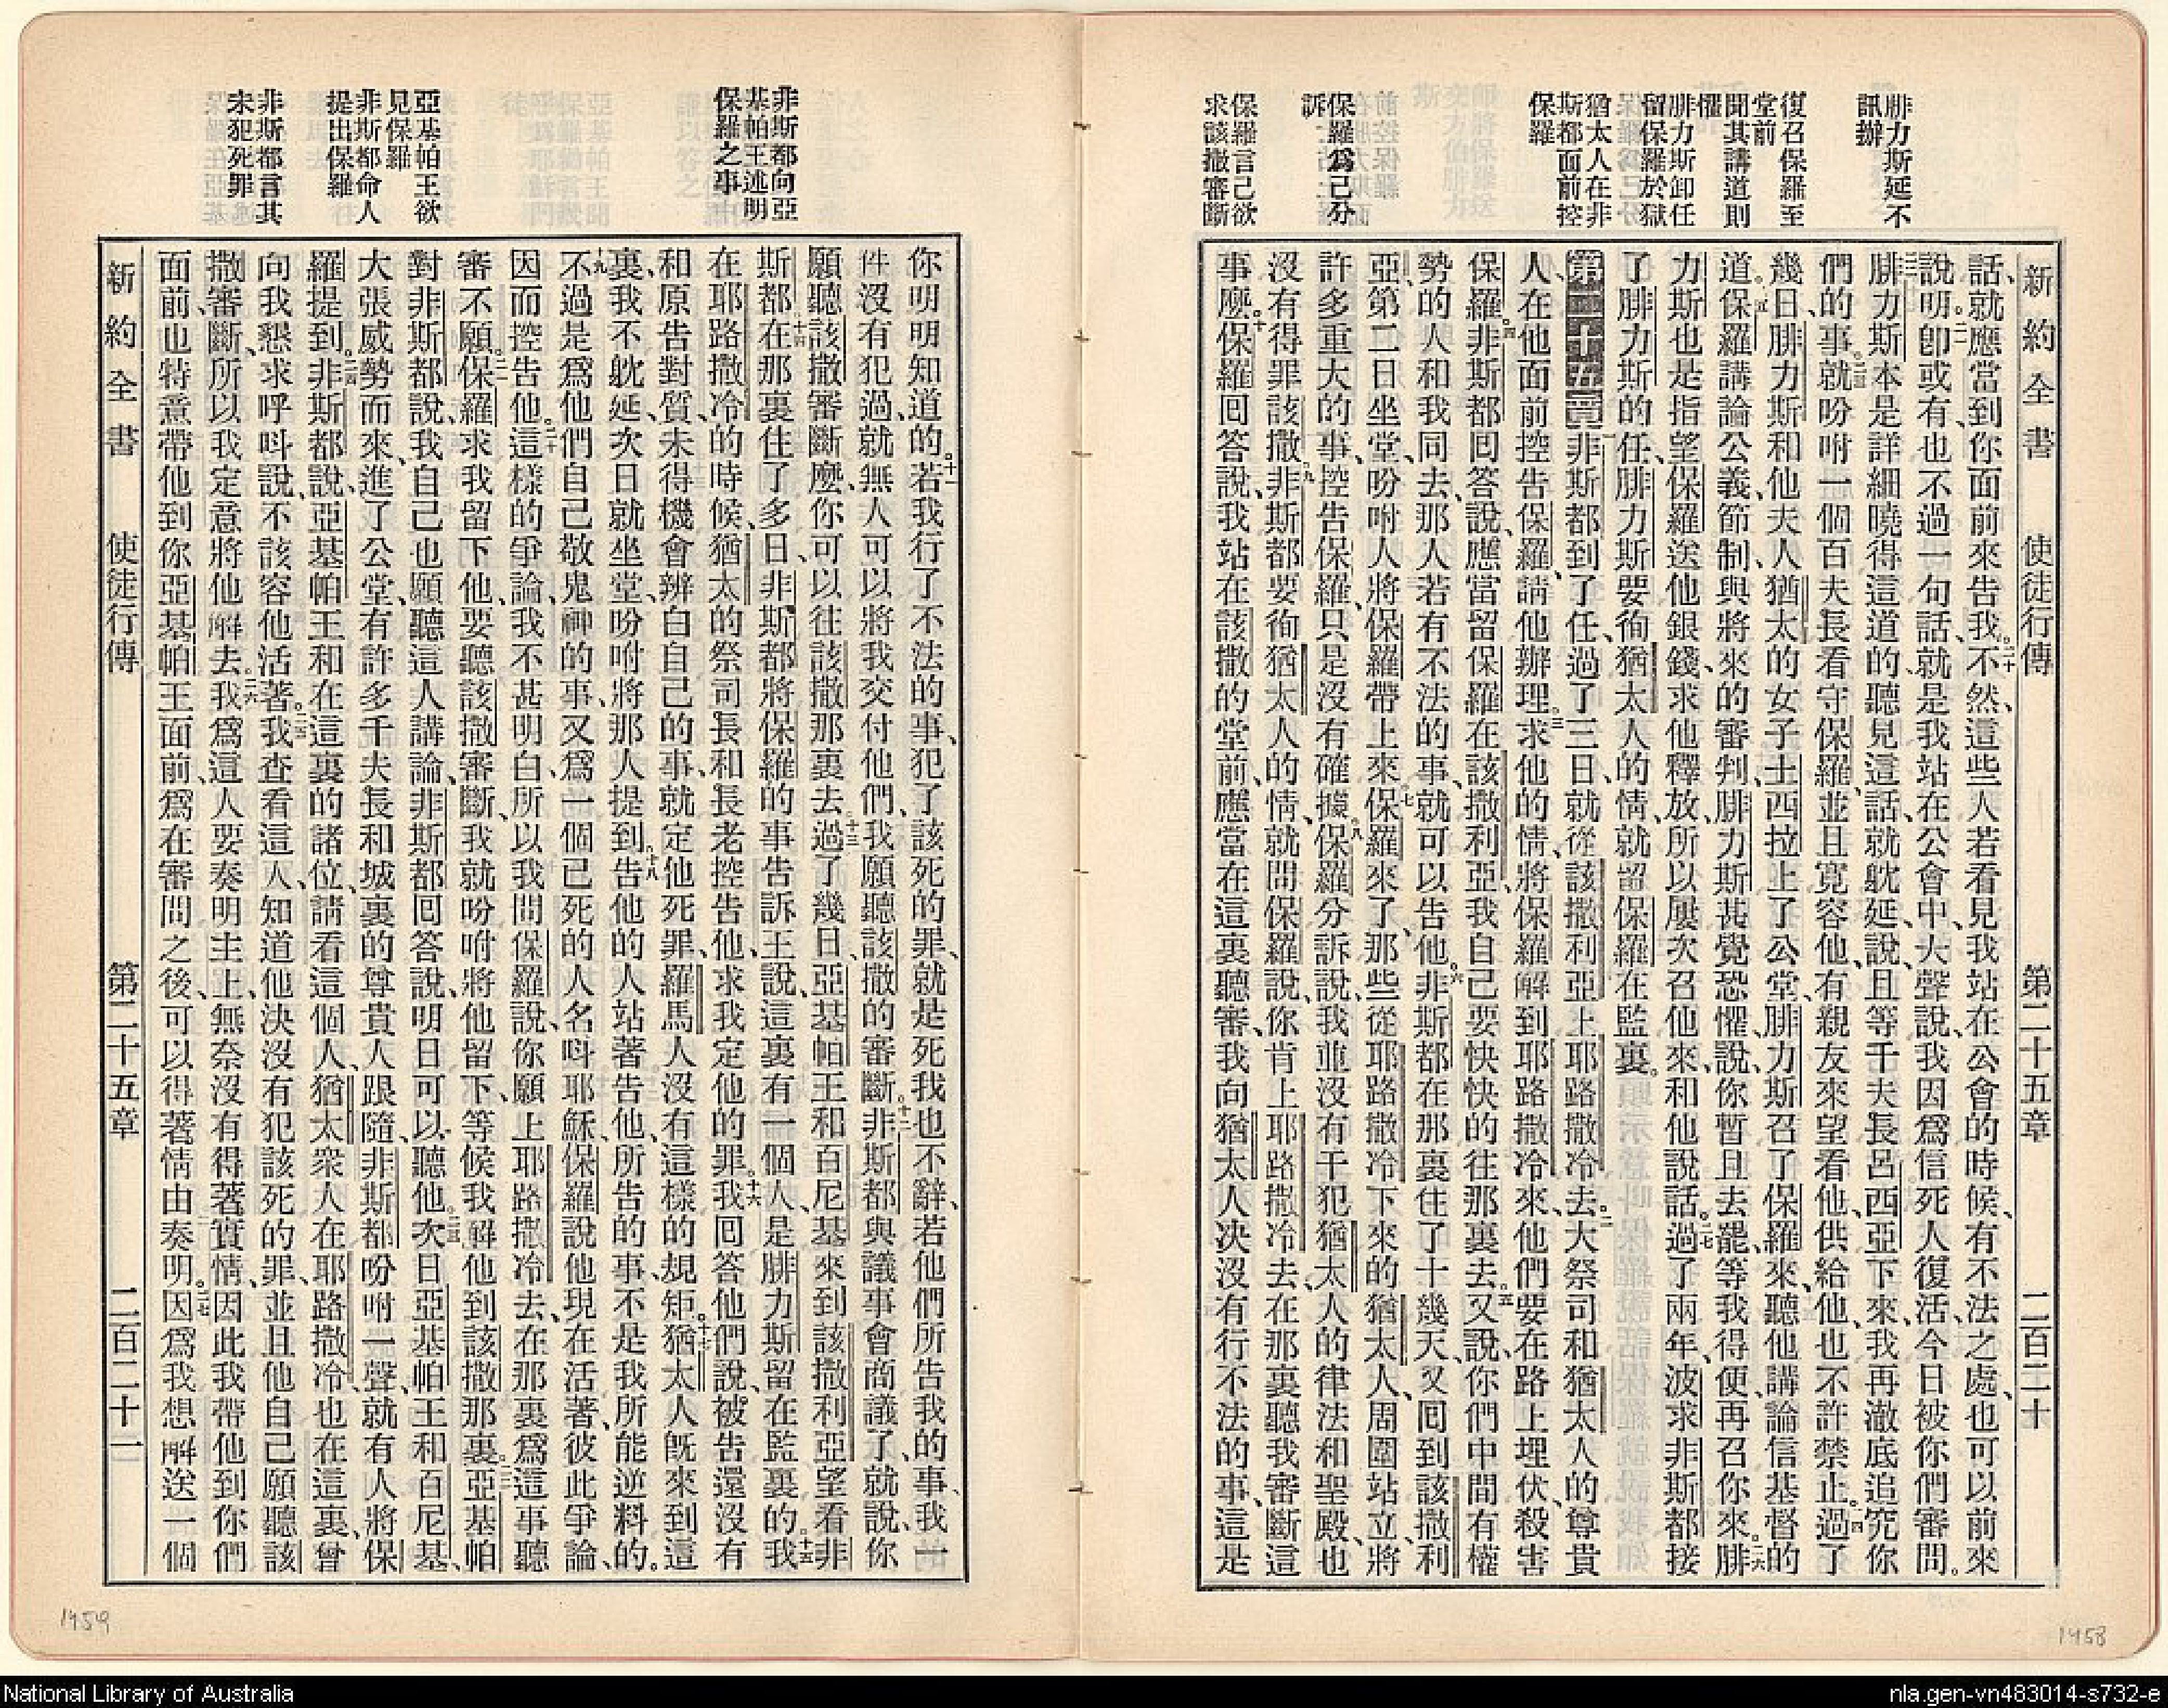 腓力斯延不
訊辦
復召保羅至
堂前
聞其講道則
懼
腓力斯卸任
留保羅於獄
猶太人在非
斯都面前控
保羅
保羅爲己分
訴
保羅言己欲
求該撒審斷
新約全書 使徒行傳 第二十五章 二百二十
話、就應當到你面前來告我。二十不然、這些人若看見我站在公會的時候、有不法之處、也可以前來
說明。二一卽或有、也不過一句話、就是我站在公會中、大聲說、我因爲信死人復活、今日被你們審問。
二二腓力斯本是詳細曉得這道的、聽見這話、就躭延、說、且等千夫長呂西亞下來、我再澈底追究你
們的事。二三就吩咐一個百夫長看守保羅、並且寬容他、有親友來望看他、供給他、也不許禁止。二四過了
幾日、腓力斯和他夫人猶太的女子土西拉上了公堂、腓力斯召了保羅來、聽他講論信基督的
道。二五保羅講論公義、節制、與將來的審判、腓力斯甚覺恐懼、說、你暫且去罷、等我得便、再召你來。二六腓
力斯也是指望保羅送他銀錢、求他釋放、所以屢次召他來、和他說話。二七過了兩年、波求非斯都接
了腓力斯的任、腓力斯要徇猶太人的情、就留保羅在監裏。
第二十五章 一非斯都到了任、過了三日、就從該撒利亞上耶路撒冷去。二大祭司和猶太人的尊貴
人在他面前控告保羅、請他辦理。三求他的情、將保羅解到耶路撒冷來、他們要在路上埋伏、殺害
保羅。四非斯都回答說、應當留保羅在該撒利亞、我自己要快快的往那裏去。五又說、你們中間有權
勢的人、和我同去、那人若有不法的事、就可以告他。六非斯都在那裏住了十幾天、又回到該撒利
亞、第二日坐堂、吩咐人將保羅帶上來。七保羅來了、那些從耶路撒冷下來的猶太人、周圍站立、將
許多重大的事、控告保羅、只是沒有確據。八保羅分訴說、我並沒有干犯猶太人的律法和聖殿、也
沒有得罪該撒。九非斯都要徇猶太人的情、就問保羅說、你肯上耶路撒冷去、在那裏聽我審斷這
事麼。十保羅回答說、我站在該撒的堂前、應當在這裏聽審、我向猶太人決沒有行不法的事、這是
非斯都向亞
基帕王述明
保羅之事
亞基帕王欲
見保羅
非斯都命人
提出保羅
非斯都言其
未犯死罪
你明明知道的。十一若我行了不法的事、犯了該死的罪、就是死我也不辭、若他們所告我的事、我一
件沒有犯過、就無人可以將我交付他們、我願聽該撒的審斷。十二非斯都與議事會商議了、就說、你
願聽該撒審斷麼、你可以往該撒那裏去。十三過了幾日、亞基帕王和百尼基來到該撒利亞、望看非
斯都。十四在那裏住了多日、非斯都將保羅的事告訴王說、這裏有一個人、是腓力斯留在監裏的。十五我
在耶路撒冷的時候、猶太的祭司長和長老控告他、求我定他的罪。十六我回答他們說、被告還沒有
和原告對質、未得機會辨白自己的事、就定他死罪、羅馬人沒有這樣的規矩。十七猶太人旣來到這
裏、我不躭延、次日就坐堂、吩咐將那人提到。十八告他的人站著告他、所告的事、不是我所能逆料的。
十九不過是爲他們自己敬鬼神的事、又爲一個已死的人、名呌耶穌、保羅說他現在活著、彼此爭論、
因而控告他。二十這樣的爭論、我不甚明白、所以我問保羅說、你願上耶路撒冷去、在那裏爲這事聽
審不願。二一保羅求我留下他、要聽該撒審斷、我就吩咐將他留下、等候我解他到該撒那裏。二二亞基帕
對非斯都說、我自己也願聽這人講論、非斯都回答說、明日可以聽他。二三次日亞基帕王和百尼基、
大張威勢而來、進了公堂、有許多千夫長和城裏的尊貴人跟隨、非斯都吩咐一聲、就有人將保
羅提到。二四非斯都說、亞基帕王和在這裏的諸位、請看這個人、猶太衆人在耶路撒冷、也在這裏、曾
向我懇求呼呌說、不該容他活著。二五我查看這人、知道他決沒有犯該死的罪、並且他自己願聽該
撒審斷、所以我定意將他解去。二六我爲這人要奏明主上、無奈沒有得著實情、因此我帶他到你們
面前、也特意帶他到你亞基帕王面前、爲在審問之後、可以得著情由奏明。二七因爲我想解送一個
新約全書 使徒行傳 第二十五章 二百二十一
1459
1458
National Library of Australia
nla.gen-vn483014-s732-e